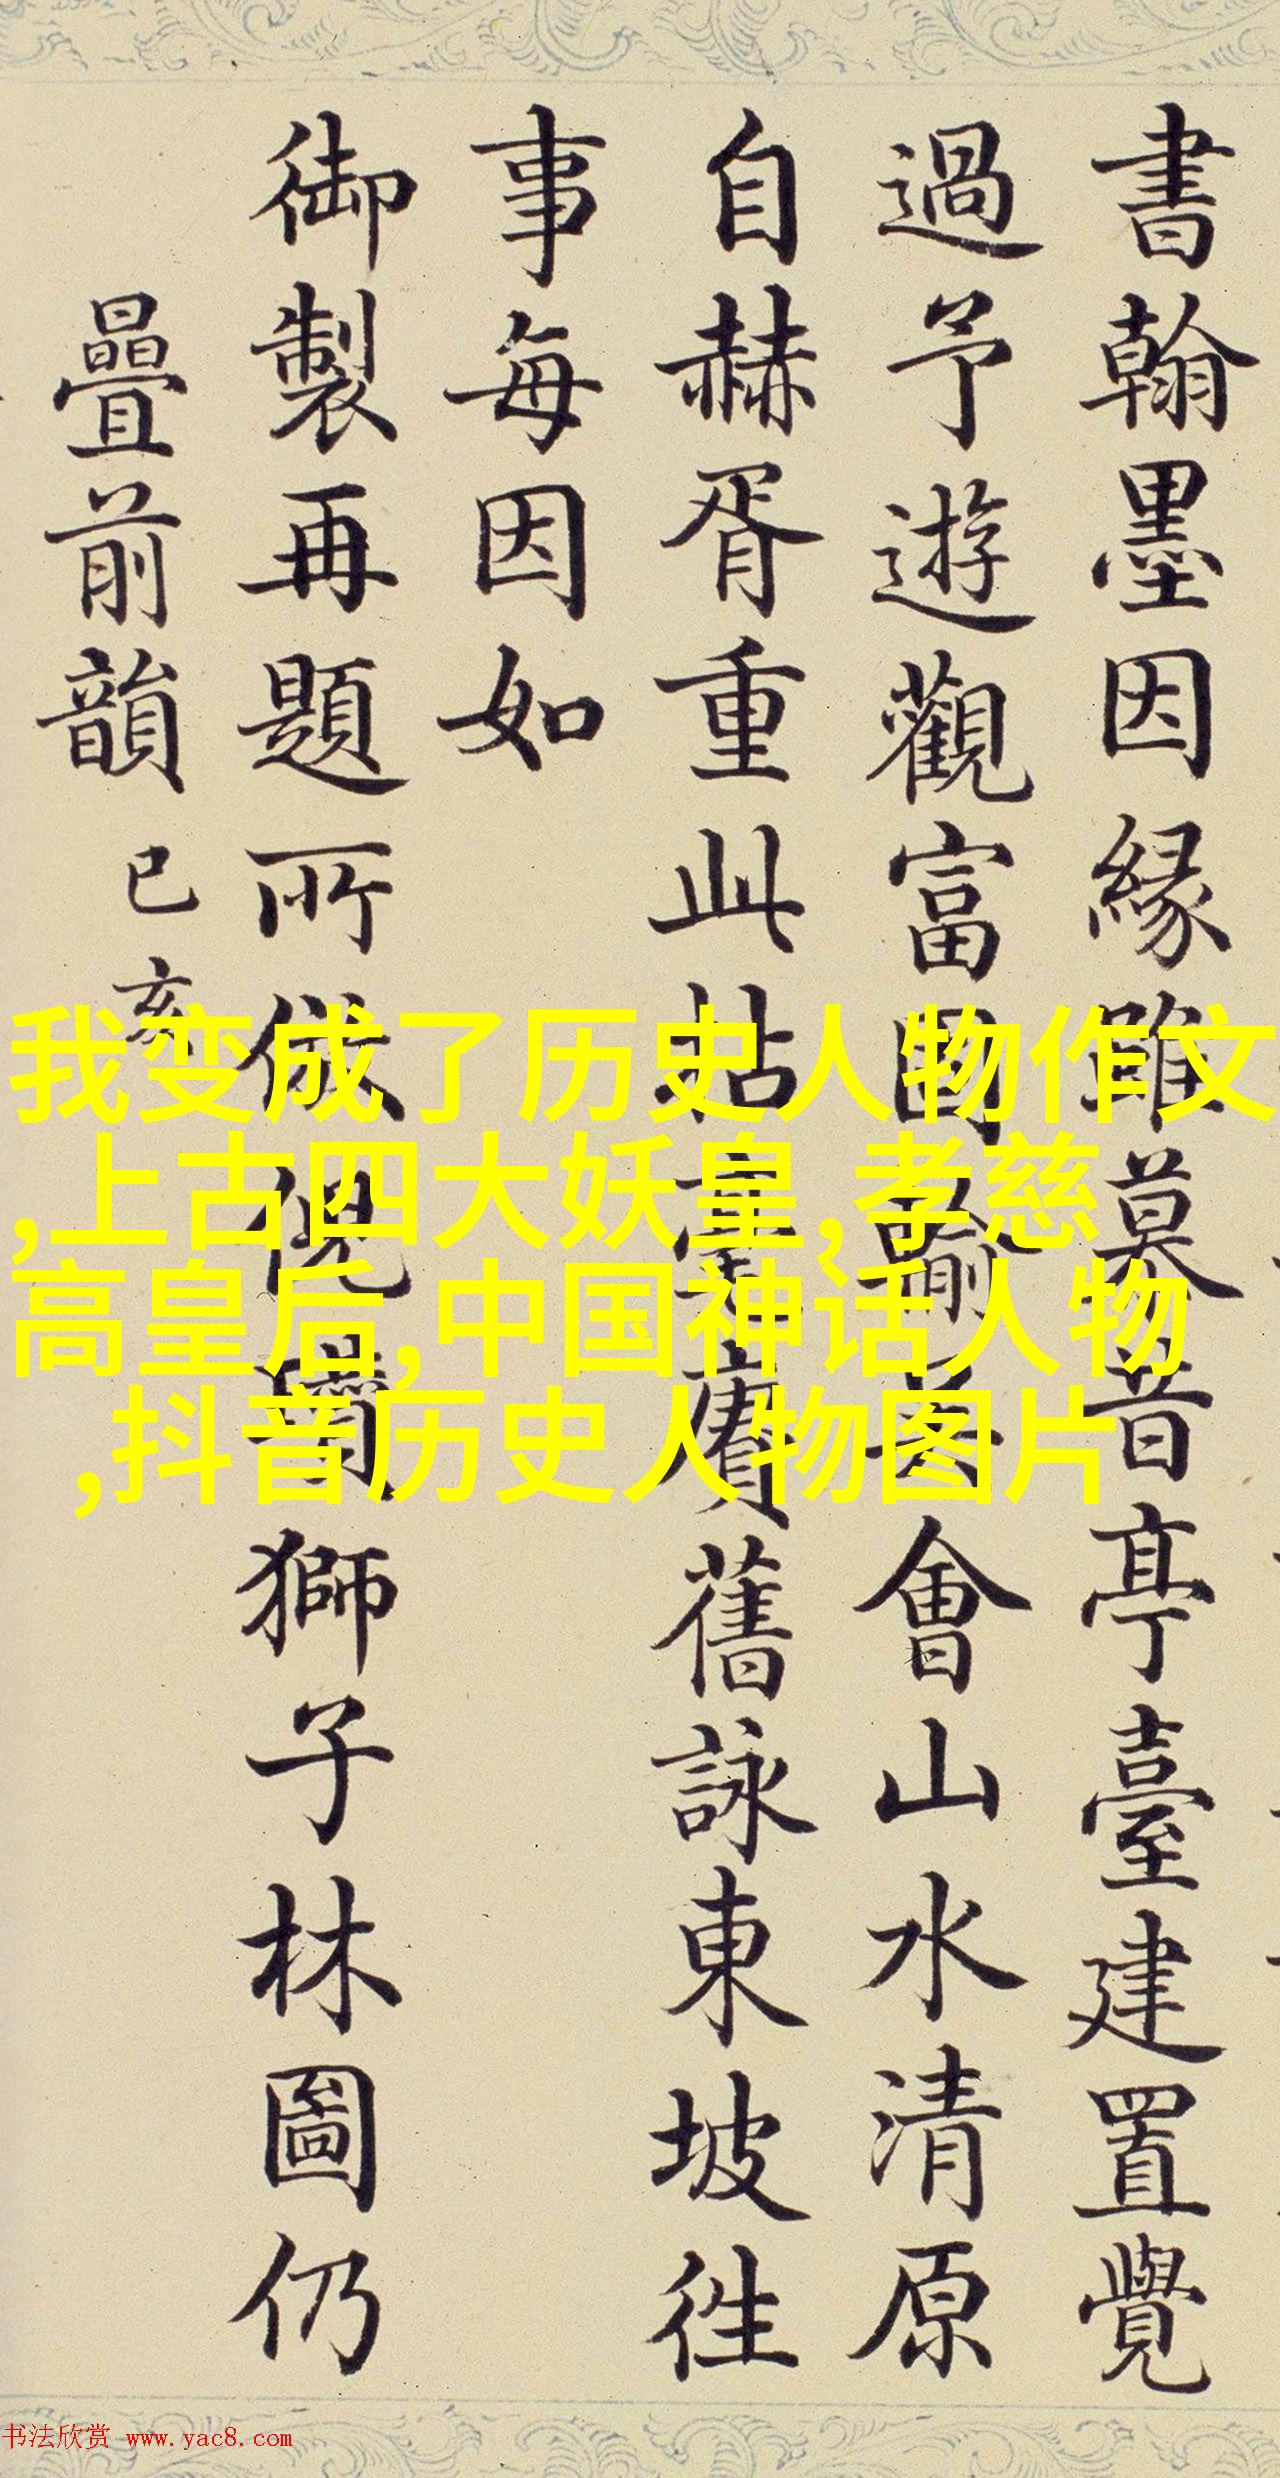 書翰墨因緣雖慕昔亭臺建置覺
過予遊觀富會山水清原
自赫胥重此拈毫賡舊詠東坡往
事每因如
御製再題所倣倪瓚獅子林圖仍
疊前韻 已亥
我变成了历史人物作文
,上古四大妖皇,孝慈
高皇后,中国神话人物
,抖音历史人物图片
书法欣赏 www.yac8.com